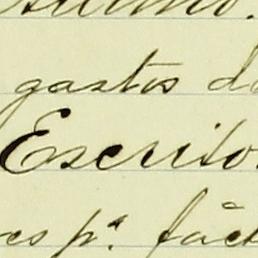 gastos d
Escrito
es pª fác